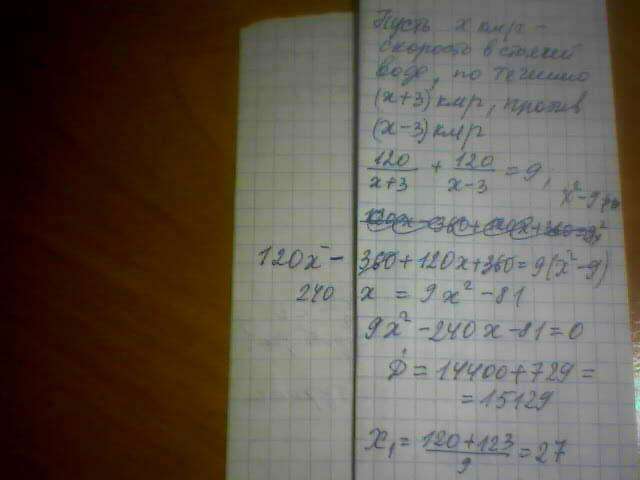 Пусть х км/р -
скорость в стоячей
воде, по течению
(х+3) км/р, против
(х-3) км/р
120/(х+3) + 120/(х-3) = 9,
х²-9≠0
120х - 360+120х+360=9(х²-9)
240 х = 9х²-81
9х²-240х-81=0
D = 14400+729=
=15129
х₁ = (120+123)/9 = 27